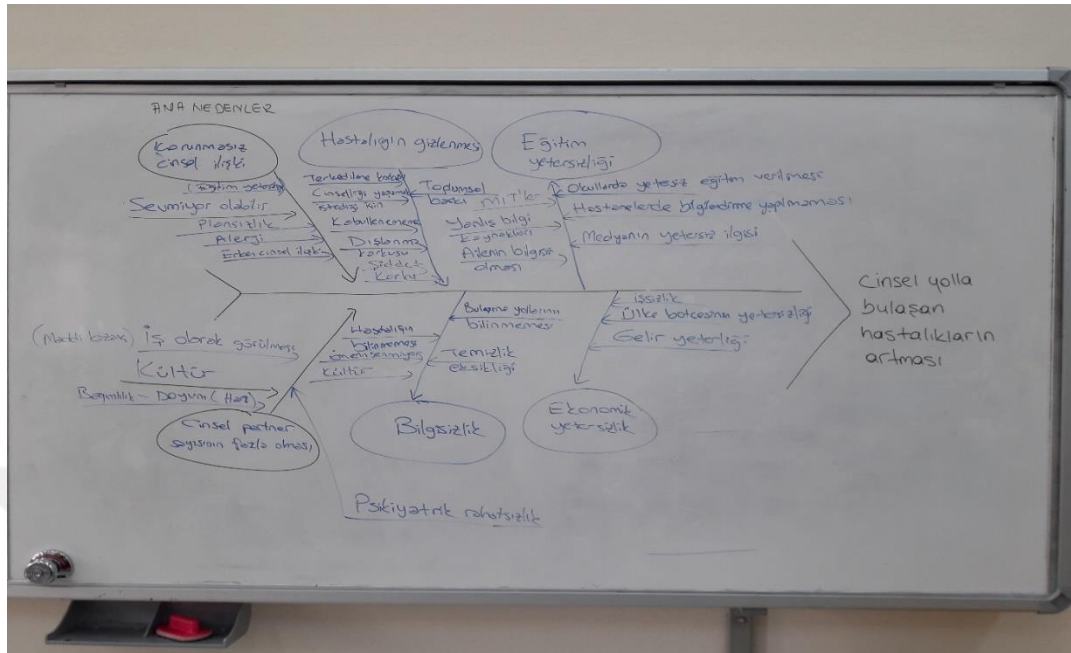 ANA NEDENLER
Korunmasız
cinsel ilişki
Sevmiyor olabilir
Plansızlık
Alerji
Erken cinsel ilişkin
Hastalığın gizlenmesi
Terkedilme korkusu
Cinselliği yaşamak
istediği için
Kabullenememe
Dışlanma
korkusu
Şiddet
Korku
Toplumsal
baskı
Eğitim
yetersizliği
MİT'ler
Yanlış bilgi
kaynakları
Ailenin bilgisiz
olması
Okullarda yetersiz eğitim verilmesi
Hastanelerde bilgilendirme yapılmaması
Medyanın yetersiz ilgisi
Cinsel yolla
bulaşan
hastalıkların
artması
(Maddi kazanç) İş olarak görülmesi
Kültür
Bağımlılık - Doyum (Haz)
Cinsel partner
sayısının fazla olması
Psikiyatrik rahatsızlık
Hastalığın
bilinmemesi
önemsenmiyor
Kültür
Bulaşma yollarının
bilinmemesi
Temizlik
eksikliği
Bilgisizlik
işsizlik
Ülke bütçesinin yetersizliği
Gelir yeterliği
Ekonomik
yetersizlik